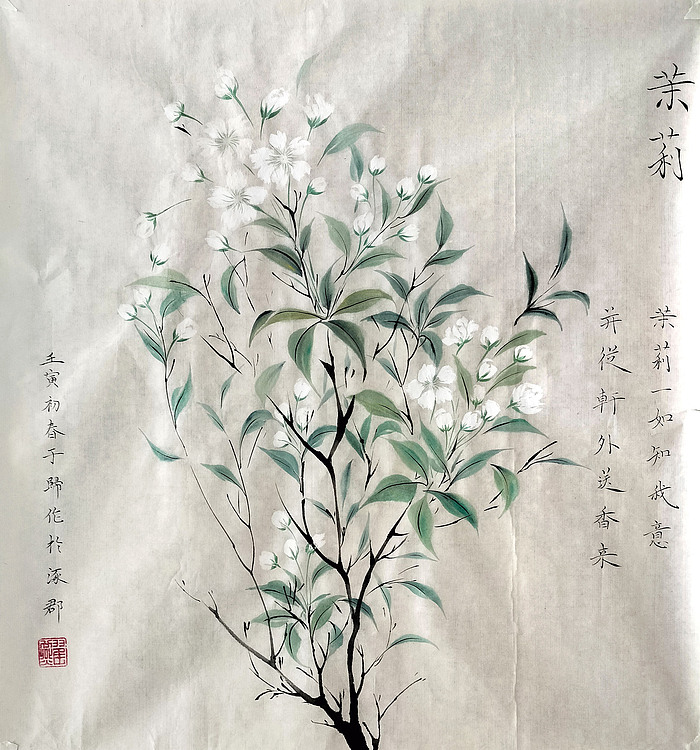 茉莉
茉莉一如知我意
并従軒外送香来
壬寅初春于歸作於涿郡